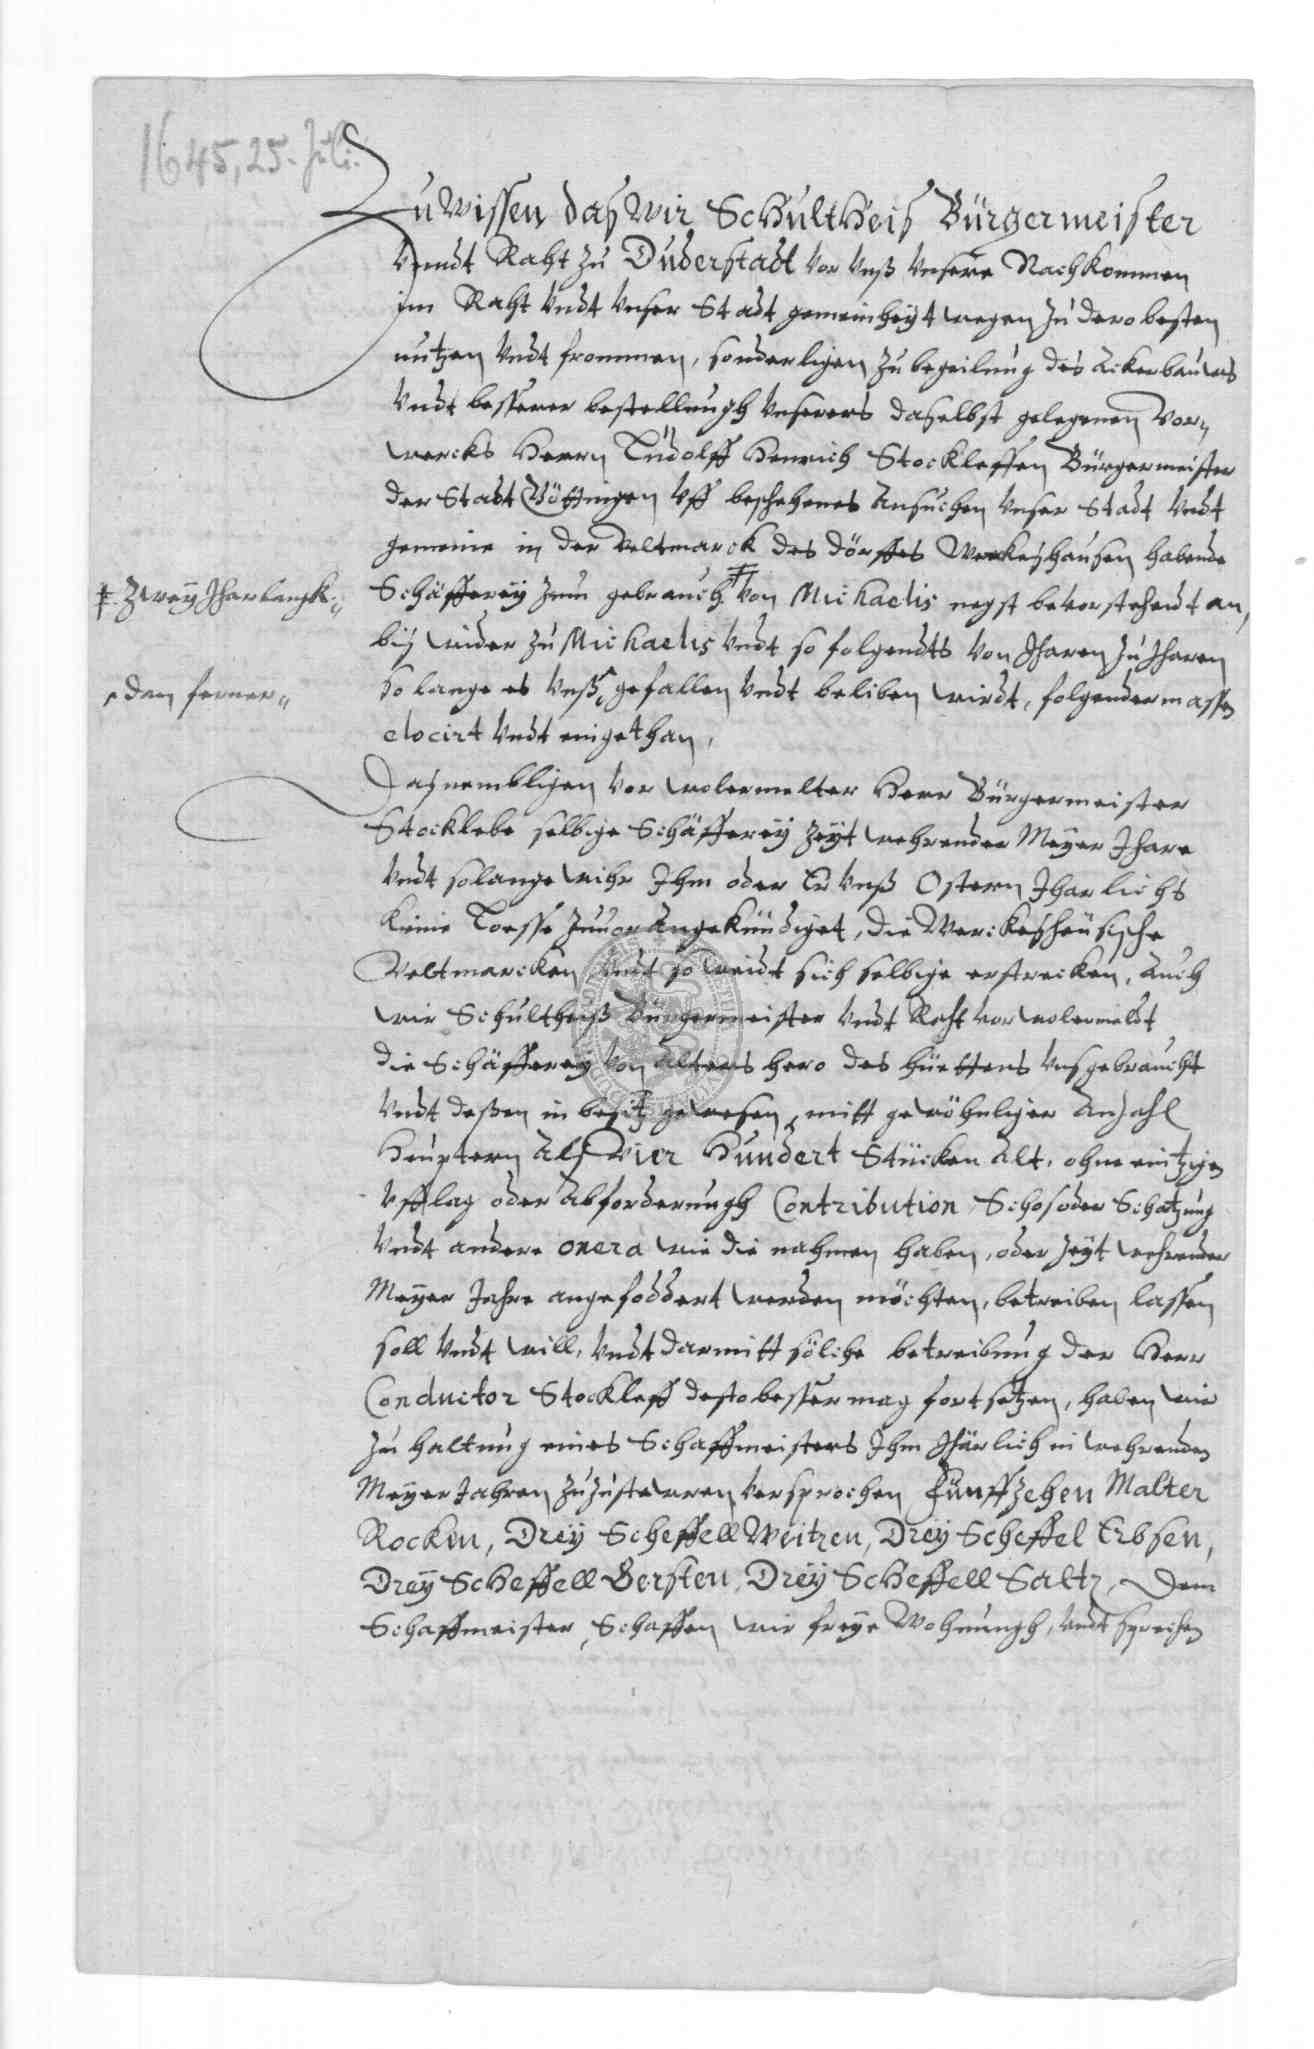 1645, 25. Juli.
Zu Wissen das Wir Schultheis Bürgermeister
Vnndt Raht zu Duderstadt vor vnß vnsere Nachkommen
im Raht vndt vnser Stadt gemeinheyt wegen zu dero besten
nutzen vndt frommen, sonderligen zu begeilung des Ackerbauwes
vndt besserer bestellungh vnserers daselbst gelegenen Vor„
wercks Herrn Lüdolff Henrich Stockleffen Bürgermeister
der Stadt Göttingen vff beschehenes Ansuchen vnser Stadt vndt
gemeine in der Veltmarck des dörffes Werkeshausen habende
‡. Zwey Jharlangk.„
Schäfferey zum gebrauch ‡ von Michaelis negst bevorstehendt an,
biß wider zu Michaelis vndt so folgendts von Jharen zu Jharen
dan ferner„
so lange es vnß gefallen vndt beliben wirdt, folgendermassen
elocirt vndt eingethan,
Das nembligen vor wolermelter Herr Bürgermeister
Stocklebe selbige Schäfferey Zeyt wehrender Meyer Jhare
vndt solange wihr Ihm oder Er vnß Ostern Jharlichs
keine Loesse zuuor angekündiget, die Werckesheusische
Veltmarcken, vndt so weidt sich selbige erstrecken, Auch
wir Schultheiß Bürgermeister vndt Raht vor wolermeldt
die Schäfferey von alters hero des hüettens vns gebraucht
vndt deßen in besitz gewesen, mitt gewöhnliger Anzahl
Heuptern Als Vier Hundert Stücken Alt, ohne eintzigen
Vfflag oder Abforderungh Contribution Schos oder Schatzung
vndt andere onera wie die nahmen haben, oder zeyt wehrender
Meyer Jahre angefoddert werden möchten, betreiben lassen
soll vndt will, vndt darmitt sölche betreibung der Herr
Conductor Stockleff desto besser mag fortsetzen, haben wir
zu haltung eines Schaffmeisters Ihm Jhärlich in wehrenden
Meyer Jahren zuzusteuren versprochen Fünffzehen Malter
Rocken, Drey Scheffell Weitzen, Drey Scheffel Erbsen,
Drey Scheffell Gersten, Drey Scheffell Saltz, Dem
Schaffmeister, Schaffen wir freye Wohnungh, vndt sprechen